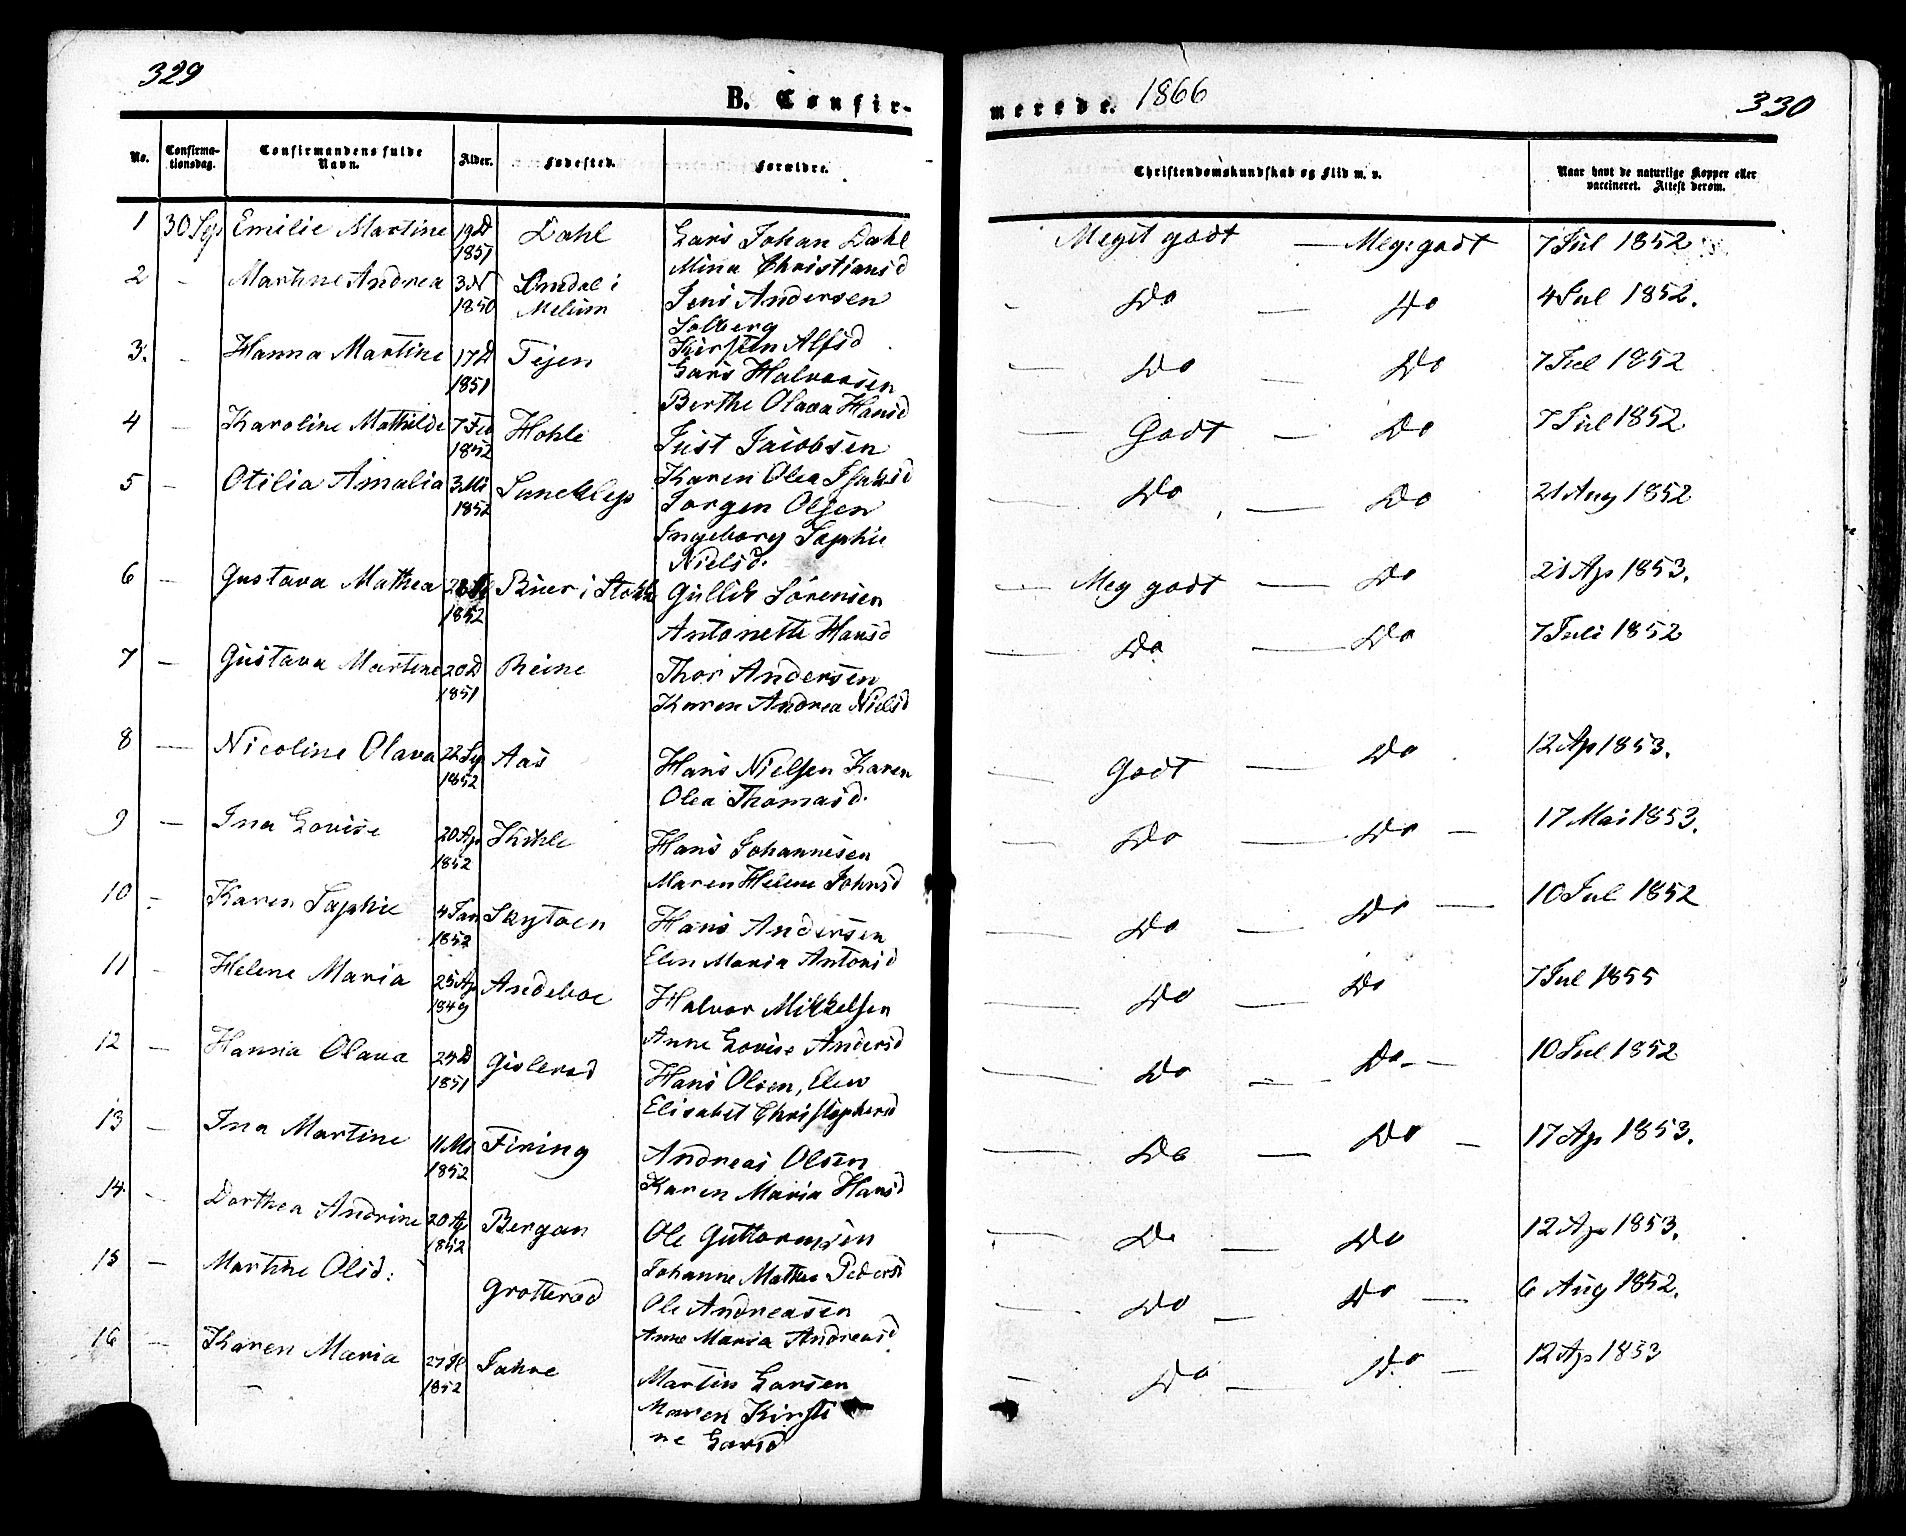 329
B. Confir-
merede. 1866
330
No. Confirma-tionsdag. Confirmandens fulde Navn. Alder. Fødested. Forældre. Christendomskundskab og Flid m. v. Naar havt de naturlige Kopper eller vaccineret. Attest derom.
1 30 Sep Emilie Martine 19 D Dahl Lars Johan Dahl Meget godt — Meg: godt 7 Jul 1852
1851 Mina Christiansd
2 - Martine Andrea 3 N i Jens Andersen - Do — Do 4 Jul 1852.
1850 Melum Solberg
Kirsten Alfsd
3. - Hanna Martine 17 D Tejen Lars Halvorsen — Do — Do 7 Jul 1852
1851 Berthe Olava Hansd
4 — Karoline Mathilde 7 Feb Hohle Just Jacobsen — Godt — Do 7 Jul 1852
1852 Karen Olea Isaksd
5 — Otilia Amalia 3 Mi Jørgen Olsen Do — Do 21 Aug 1852
1852 Ingeborg Sophie
Nielsd.
6 — Gustava Mathea i Stokke Gullik Sørensen — Meg godt — Do 21 Ap 1853.
1852 Antonette Hansd
7 — Gustava Martine 20 D Reine Thor Andersen — Do — Do 7 Juli 1852
1851 Karen Andrea Nielsd
8 — Nicoline Olava 22 Sep Aas Hans Nielsen Karen — Godt — Do 12 Ap 1853.
1852 Olea Thomasd.
9 — Ina Lovise 20 Ap Kihle Hans Johannesen — Do — Do — 17 Mai 1853.
1852 Maren Helene Johnsd
10 - Karen Sophie 4 Jan Skytøen Hans Andersen — Do — Do — 10 Jul 1852
1852 Elen Maria Antonsd
11 - Helene Maria 25 Ap Andeboe Halvor Mikkelsen — Do — Do 7 Jul 1855
1849 Anne Lovise Andersd
12 — Hanna Olava 24 D Gislerød Hans Olsen, Elen — Do — Do — 10 Jul 1852
1851 Elisabet Christophersd
13 — Ina Martine 11 Ms Firing Andreas Olsen — Do — Do — 17 Ap 1853.
1852 Karen Maria Hansd
14 — Dorthea Andrine 20 Ap Bergan Ole Guttormsen — Do — Do 12 Ap 1853.
1852 Johanne Mathea Pedersd
15 — Martine Olsd: Grotterød Ole Andreasen — Do — Do — 6 Aug 1852.
Anne Maria Andreasd.
16 — Karen Maria Martin Larsen - Do — Do — 12 Ap 1853
1852 Maren Kirsti
ne Larsd